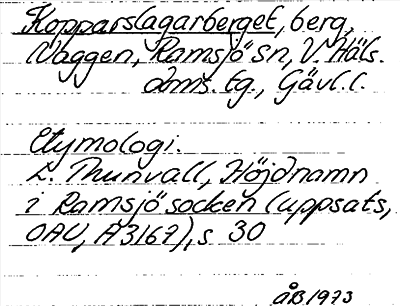 Kopparslagarberget, berg,
Vaggen, Ramsjö sn, V. Häls.
doms. tg., Gävl. l.
Etymologi.
L. Thunvall, Höjdnamn
i Ramsjö socken (uppsats,
OAU, A 3167), s 30
ÅB 1973